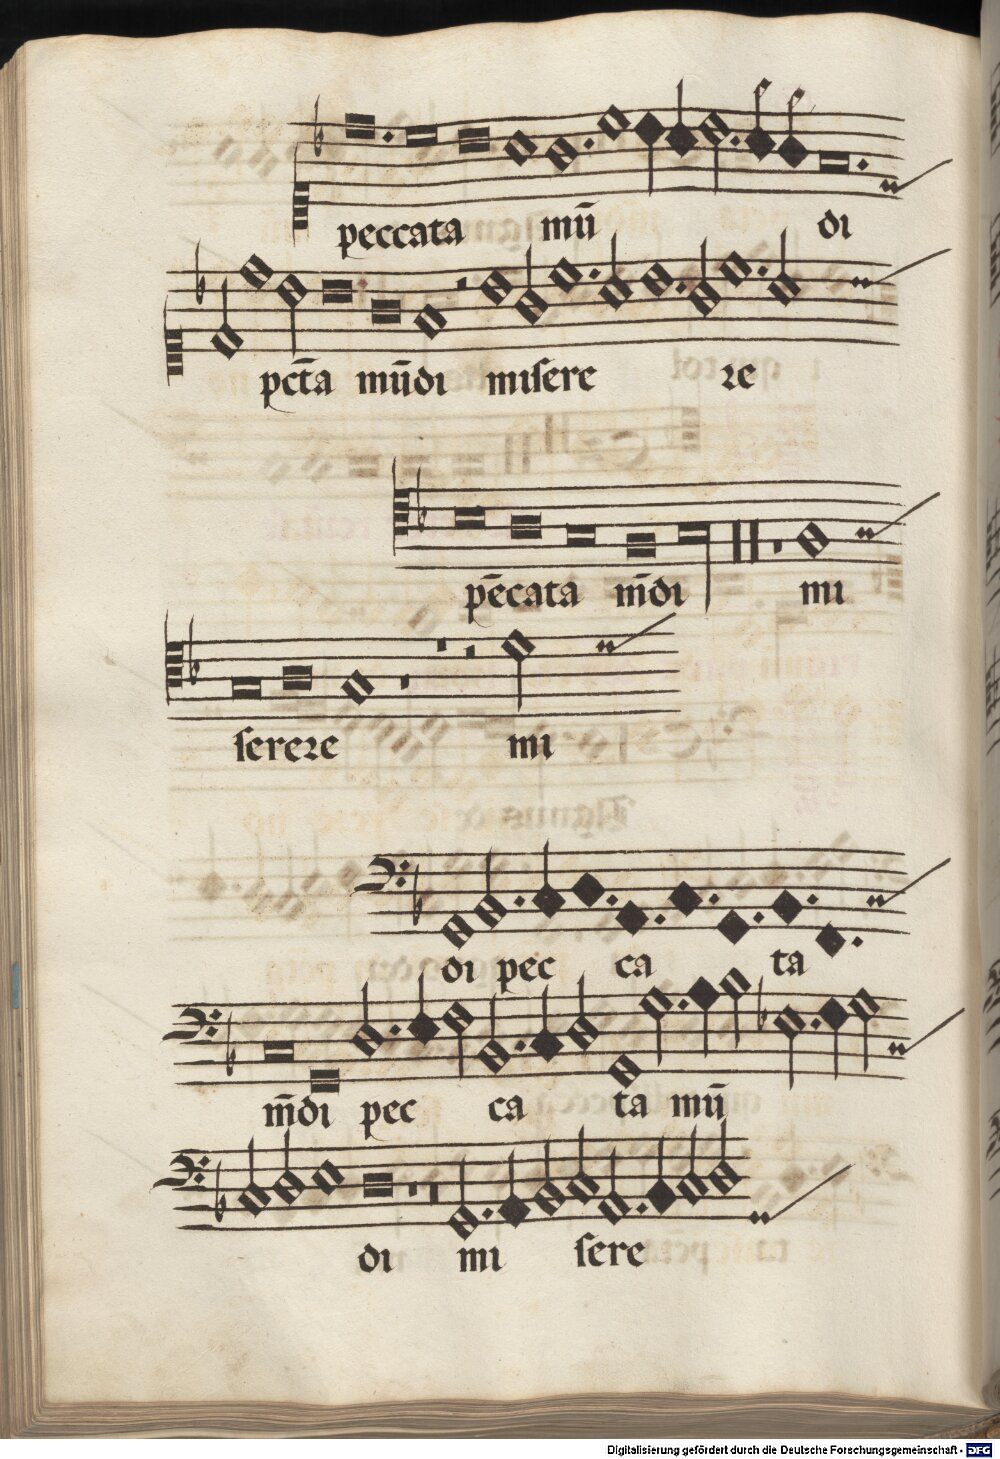 peccata mū di
pct̄a mūdi miſere re
pēcata m̄di mi
ſerere mi
di pec ca ta
m̄di pec ca ta mū
di mi ſere
Digitalisierung gefördert durch die Deutsche Forschungsgemeinschaft - DFG